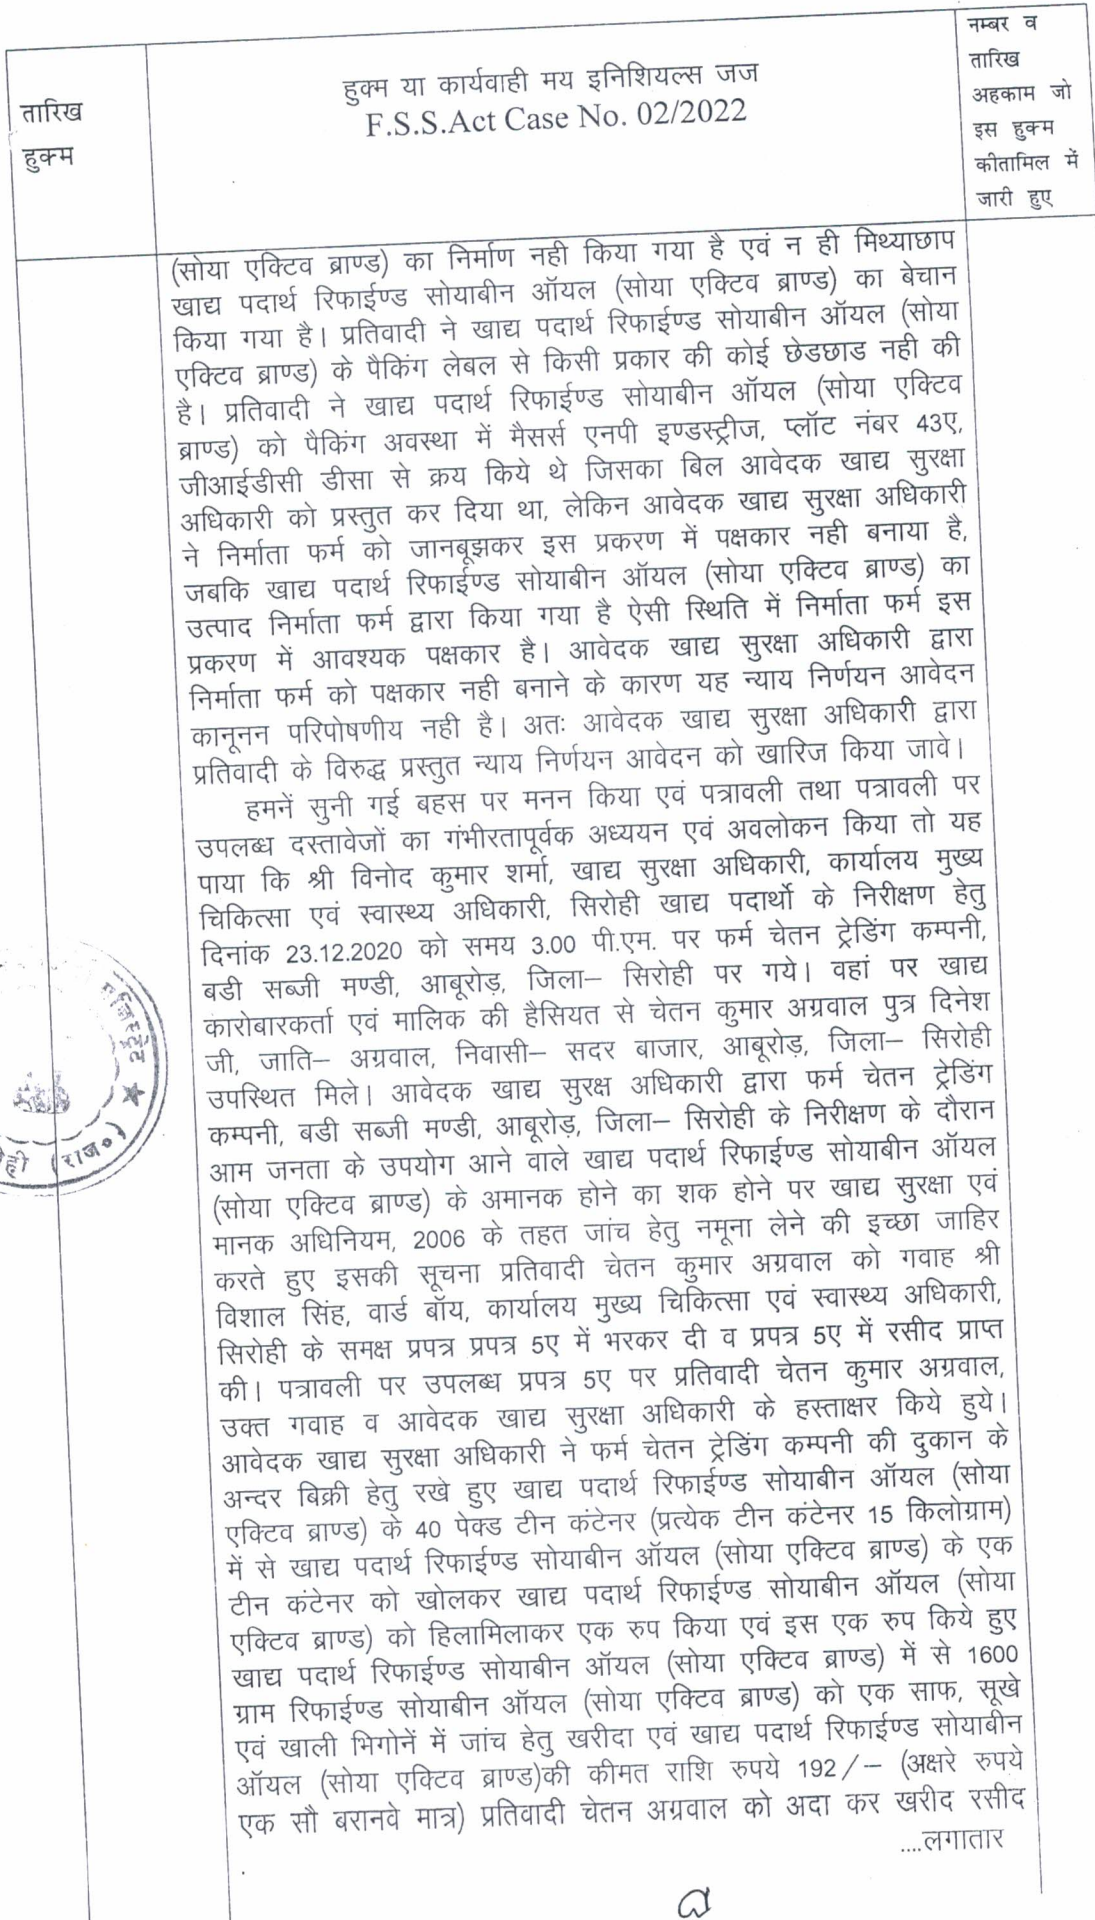 तारिख
हुक्म
हुक्म या कार्यवाही मय इनिशियल्स जज
F.S.S.Act Case No. 02/2022
नम्बर व
तारिख
अहकाम जो
इस हुक्म
कीतामिल में
जारी हुए
(सोया एक्टिव ब्राण्ड) का निर्माण नही किया गया है एवं न ही मिथ्याछाप
खाद्य पदार्थ रिफाईण्ड सोयाबीन ऑयल (सोया एक्टिव ब्राण्ड) का बेचान
किया गया है। प्रतिवादी ने खाद्य पदार्थ रिफाईण्ड सोयाबीन ऑयल (सोया
एक्टिव ब्राण्ड) के पैकिंग लेबल से किसी प्रकार की कोई छेडछाड नही की
है। प्रतिवादी ने खाद्य पदार्थ रिफाईण्ड सोयाबीन ऑयल (सोया एक्टिव
ब्राण्ड) को पैकिंग अवस्था में मैसर्स एनपी इण्डस्ट्रीज, प्लॉट नंबर 43ए,
जीआईडीसी डीसा से क्रय किये थे जिसका बिल आवेदक खाद्य सुरक्षा
अधिकारी को प्रस्तुत कर दिया था, लेकिन आवेदक खाद्य सुरक्षा अधिकारी
ने निर्माता फर्म को जानबूझकर इस प्रकरण में पक्षकार नही बनाया है,
जबकि खाद्य पदार्थ रिफाईण्ड सोयाबीन ऑयल (सोया एक्टिव ब्राण्ड) का
उत्पाद निर्माता फर्म द्वारा किया गया है ऐसी स्थिति में निर्माता फर्म इस
प्रकरण में आवश्यक पक्षकार है। आवेदक खाद्य सुरक्षा अधिकारी द्वारा
निर्माता फर्म को पक्षकार नही बनाने के कारण यह न्याय निर्णयन आवेदन
कानूनन परिपोषणीय नही है। अतः आवेदक खाद्य सुरक्षा अधिकारी द्वारा
प्रतिवादी के विरुद्ध प्रस्तुत न्याय निर्णयन आवेदन को खारिज किया जावे।
हमनें सुनी गई बहस पर मनन किया एवं पत्रावली तथा पत्रावली पर
उपलब्ध दस्तावेजों का गंभीरतापूर्वक अध्ययन एवं अवलोकन किया तो यह
पाया कि श्री विनोद कुमार शर्मा, खाद्य सुरक्षा अधिकारी, कार्यालय मुख्य
चिकित्सा एवं स्वास्थ्य अधिकारी, सिरोही खाद्य पदार्थो के निरीक्षण हेतु
दिनांक 23.12.2020 को समय 3.00 पी.एम. पर फर्म चेतन ट्रेडिंग कम्पनी,
बडी सब्जी मण्डी, आबूरोड़, जिला– सिरोही पर गये। वहां पर खाद्य
कारोबारकर्ता एवं मालिक की हैसियत से चेतन कुमार अग्रवाल पुत्र दिनेश
जी, जाति– अग्रवाल, निवासी– सदर बाजार, आबूरोड़, जिला– सिरोही
उपस्थित मिले। आवेदक खाद्य सुरक्ष अधिकारी द्वारा फर्म चेतन ट्रेडिंग
कम्पनी, बडी सब्जी मण्डी, आबूरोड़, जिला– सिरोही के निरीक्षण के दौरान
आम जनता के उपयोग आने वाले खाद्य पदार्थ रिफाईण्ड सोयाबीन ऑयल
(सोया एक्टिव ब्राण्ड) के अमानक होने का शक होने पर खाद्य सुरक्षा एवं
मानक अधिनियम, 2006 के तहत जांच हेतु नमूना लेने की इच्छा जाहिर
करते हुए इसकी सूचना प्रतिवादी चेतन कुमार अग्रवाल को गवाह श्री
विशाल सिंह, वार्ड बॉय, कार्यालय मुख्य चिकित्सा एवं स्वास्थ्य अधिकारी,
सिरोही के समक्ष प्रपत्र प्रपत्र 5ए में भरकर दी व प्रपत्र 5ए में रसीद प्राप्त
की। पत्रावली पर उपलब्ध प्रपत्र 5ए पर प्रतिवादी चेतन कुमार अग्रवाल,
उक्त गवाह व आवेदक खाद्य सुरक्षा अधिकारी के हस्ताक्षर किये हुये।
आवेदक खाद्य सुरक्षा अधिकारी ने फर्म चेतन ट्रेडिंग कम्पनी की दुकान के
अन्दर बिक्री हेतु रखे हुए खाद्य पदार्थ रिफाईण्ड सोयाबीन ऑयल (सोया
एक्टिव ब्राण्ड) के 40 पेक्ड टीन कंटेनर (प्रत्येक टीन कंटेनर 15 किलोग्राम)
में से खाद्य पदार्थ रिफाईण्ड सोयाबीन ऑयल (सोया एक्टिव ब्राण्ड) के एक
टीन कंटेनर को खोलकर खाद्य पदार्थ रिफाईण्ड सोयाबीन ऑयल (सोया
एक्टिव ब्राण्ड) को हिलामिलाकर एक रुप किया एवं इस एक रुप किये हुए
खाद्य पदार्थ रिफाईण्ड सोयाबीन ऑयल (सोया एक्टिव ब्राण्ड) में से 1600
ग्राम रिफाईण्ड सोयाबीन ऑयल (सोया एक्टिव ब्राण्ड) को एक साफ, सूखे
एवं खाली भिगोनें में जांच हेतु खरीदा एवं खाद्य पदार्थ रिफाईण्ड सोयाबीन
ऑयल (सोया एक्टिव ब्राण्ड)की कीमत राशि रुपये 192/– (अक्षरे रुपये
एक सौ बरानवे मात्र) प्रतिवादी चेतन अग्रवाल को अदा कर खरीद रसीद
....लगातार
(राज०)